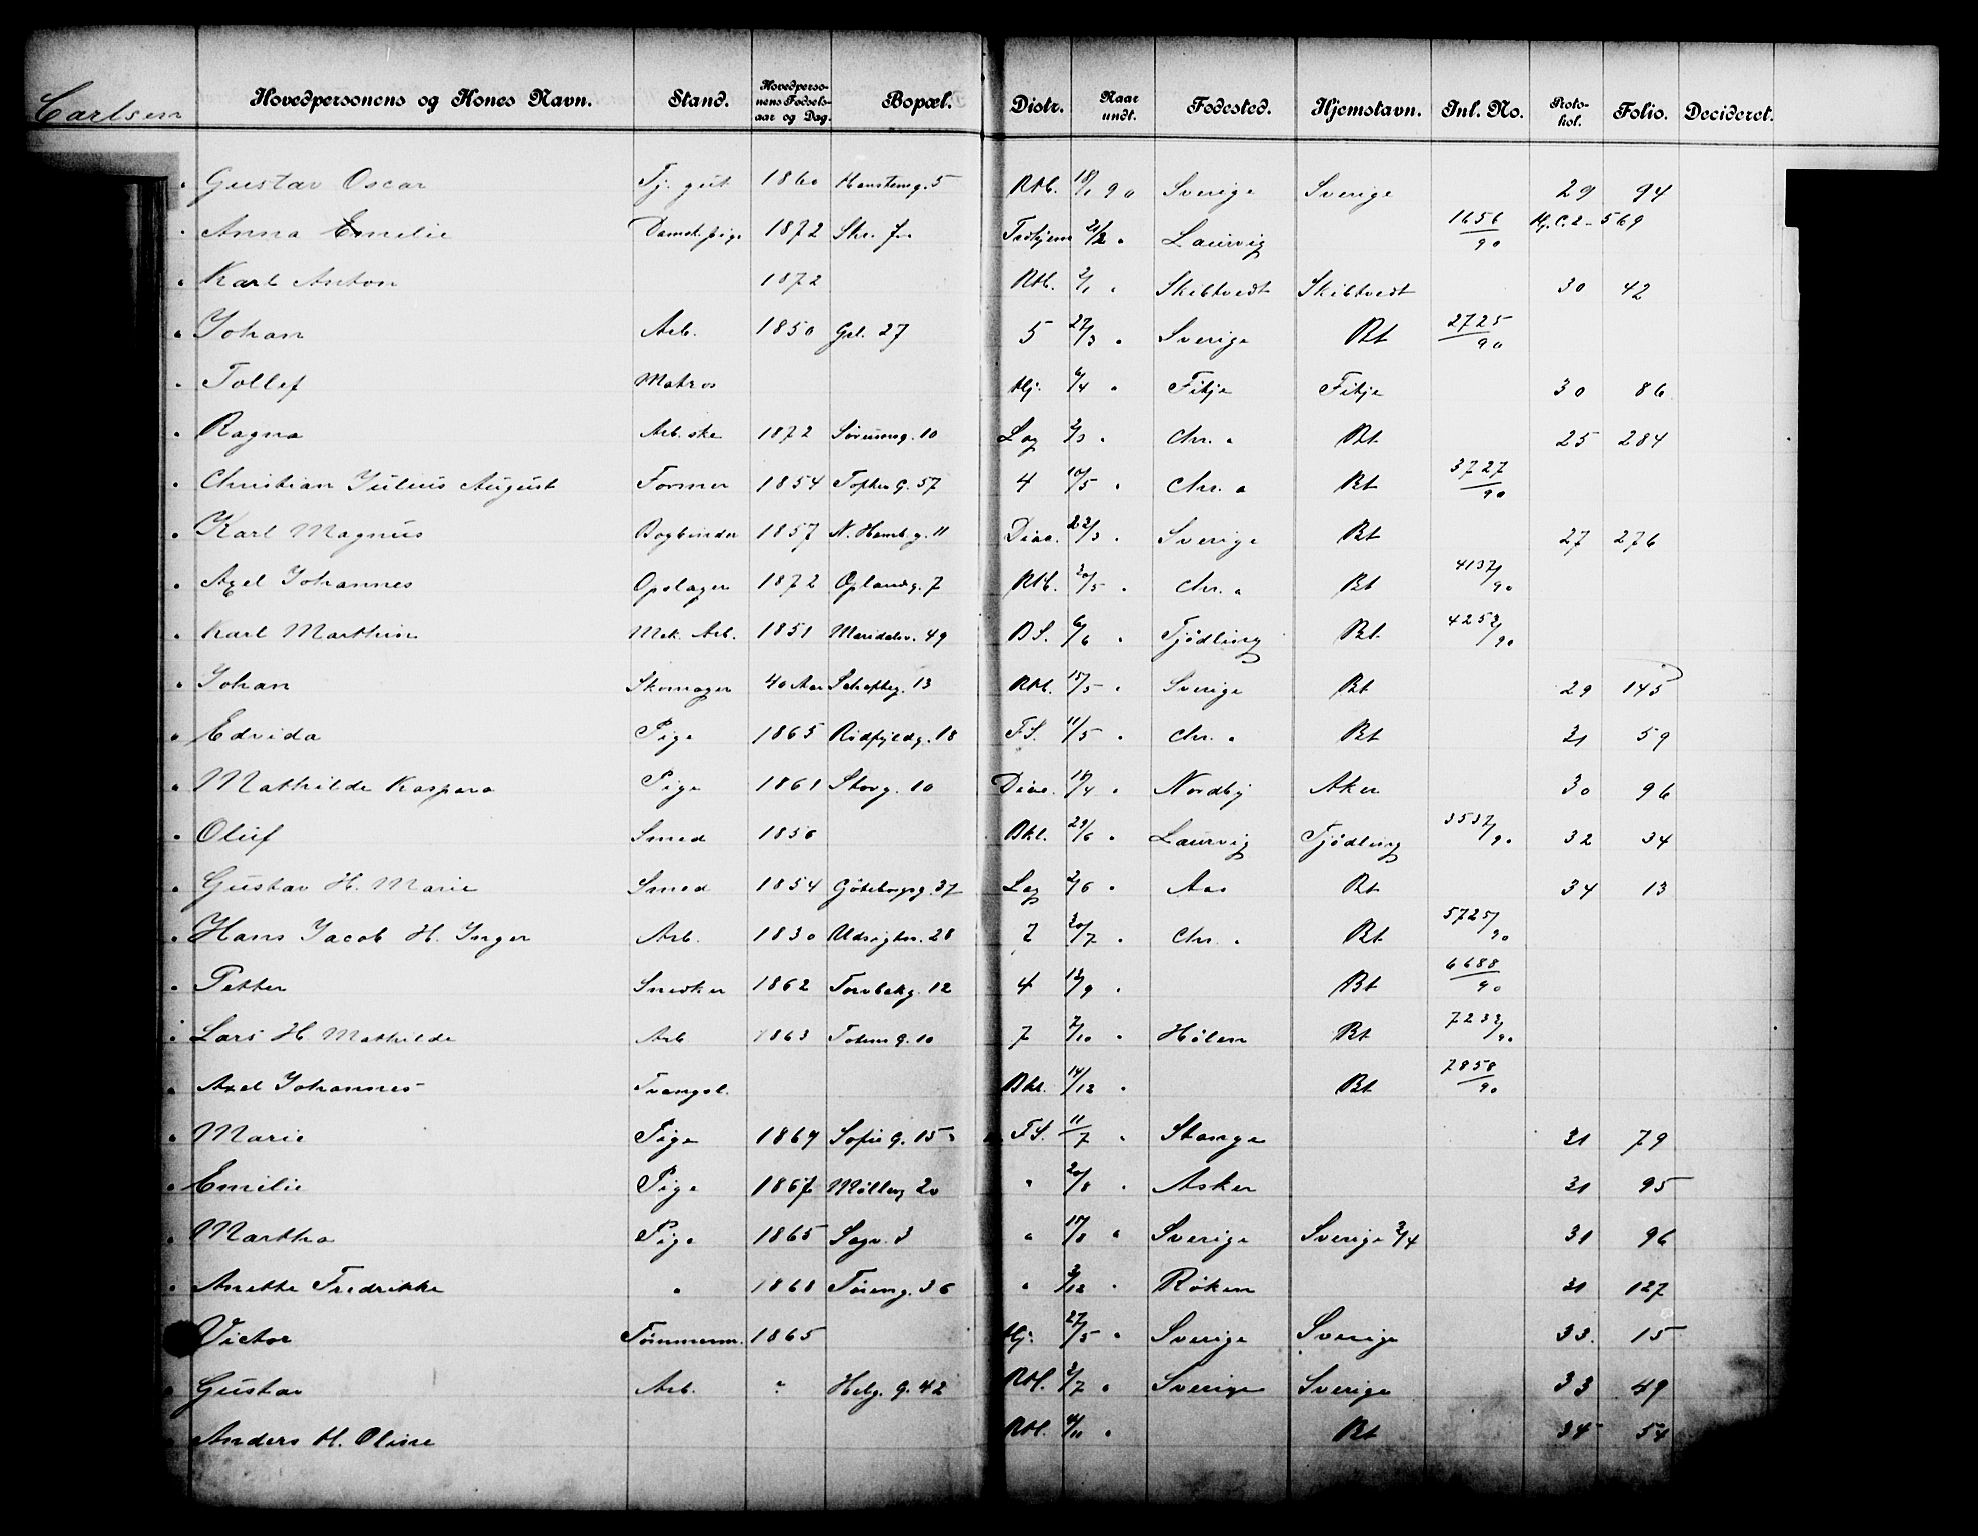 Carlsen Hovedpersonens og Kones Navn. Stand. Hovedpersonens Fødselsaar og Dag. Bopæl. Distr. Naar undt. Fødested. Hjemstavn. Inl. No. Protokol. Folio. Decideret.
" Gustav Oscar Tj. gut 1860 Hanstensg. 5 RM. 18/1 90 Sverige Sverige 29 94
" Anna Emilie 1872 2/2 " Laurvig 1656/90 Hj. C. 2 - 569
" Karl Anton 1872 RM. 2/1 " Skibtvedt Skibtvedt 30 42
" Johan Arb. 1850 Grl. 27 5 27/3 " Sverige Bt 2725/90
" Tollef Matros Hj. 6/4 " Fitje Fitje 30 86
" Ragna Arb. ske 1872 Sørumsg. 10 Lag 2/3 " Chr. a Bt 25 284
" Christian Julius August Former 1854 Tofte g. 57 4 10/5 " Chr. a Bt 3727/90
" Karl Magnus Bogbinder 1857 N. Hamb. g. 11 Diac. 22/3 " Sverige Bt 27 276
" Axel Johannes Opslager 1872 Oplandg. 7 RM. 20/5 " Chr. a Bt 4137/90
" Karl Marthin Mek. Arb. 1851 Maridalsv. 49 BS. 6/6 " Tjødling Bt 4252/90
" Johan Skomager 40 Aar Schofteg. 13 RM. 15/5 " Sverige Bt 29 145
" Edvida Pige 1865 Rødfyldg. 18 FS. 11/5 " Chr. a Bt 31 59
" Mathilde Kaspara Pige 1861 Storg. 10 Diac. 10/4 " Nordby Aker 30 96
" Oluf Smed 1856 Bkl. 29/6 " Laurvig Tjødling 3537/90 32 34
" Gustav H. Marie Smed 1854 Gøteborgg. 37 Lag 2/6 " Aas Bt 34 13
" Hans Jacob H. Inger Arb. 1830 Udsigtsv. 28 7 20/7 " Chr. a Bt 5725/90
" Petter Snedker 1862 Torvbakg. 12 4 12/9 " Bt 6688/90
" Lars H Mathilde Arb 1863 Totens g. 10 7 7/10 " Hølen Bt 7233/90
" Axel Johannes Tvangsl. Bkl. 14/12 " Bt 7858/90
" Marie Pige 1864 Sofie g. 15 FS. 11/7 " Stange 31 79
" Emilie Pige 1867 Møllerg 20 " 20/8 " Asker 31 95
" Martha Pige 1865 Sagv. 3 " 15/8 " Sverige Sverige 3/4 31 96
" Anette Fredrikke " 1868 Tøieng. 36 " 3/12 " Røken 31 127
Victor Tømmerm. 1865 Hj. 27/5 " Sverige Sverige 33 15
" Gustav Arb. " Helg. g. 42 RM. 3/7 " Sverige Sverige 33 49
Anders H. Oline RM. /11 " Bt 34 54